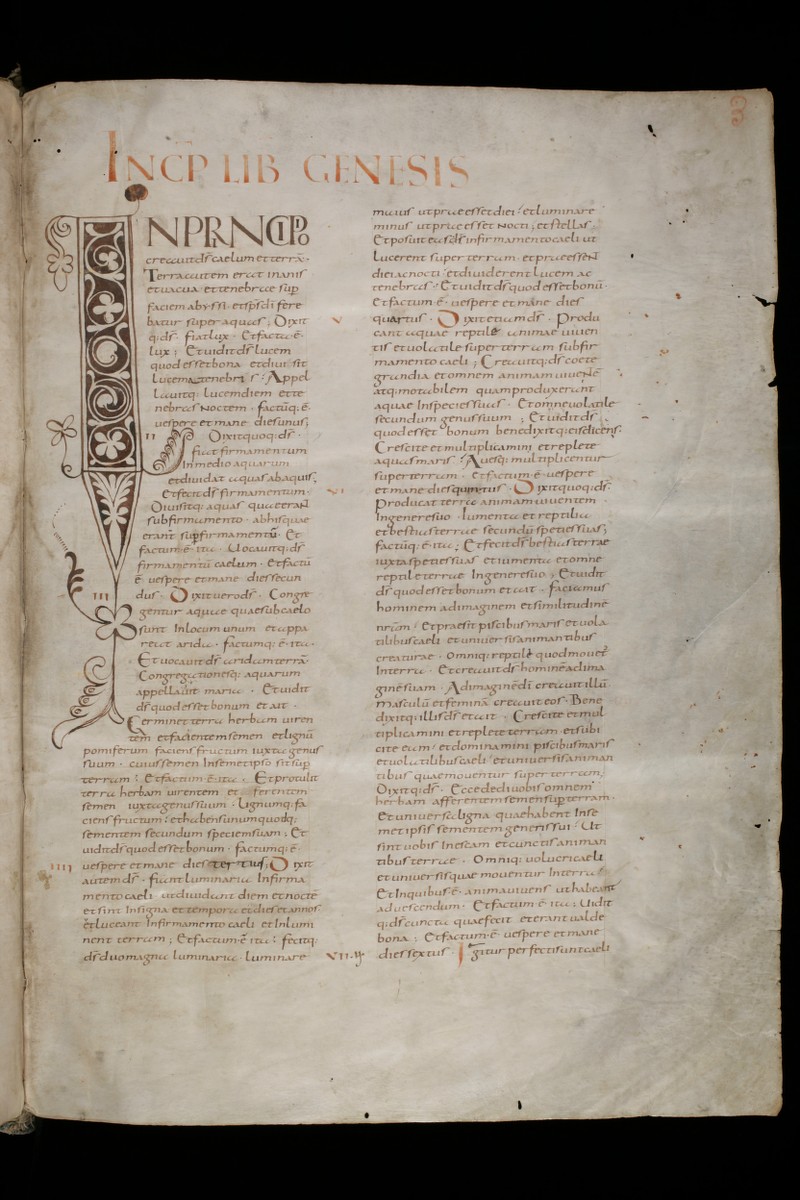 INCP LIB GENESIS
IN PRINCIPIO
creauit ds caelum et terrā.
Terra autem erat inanis
et uacua et tenebrae sup
faciem abyssi. et sps dī fere
batur super aquas; Dixit
q: ds fiat lux. Et facta ē.
lux; Et uidit ds lucem
quod esset bona et diuisit
lucem a tenebris. Appel
lauitq: lucem diem et te
nebras noctem. factūq: ē.
uespere et mane dies unus;
II Dixit quoq: ds.
fiat firmamentum
In medio aquarum
et diuidat aquas ab aquis,
Et fecit ds firmamentum.
Diuisitq: aquas quae erant
sub firmamento. ab his quae
erant sup firmamentū. Et
factum ē. ita. Uocauitq: ds
firmamentū caelum. et factū
ē. uespere et mane dies secun
dus. Dixit uero ds. Congre
III
gentur aquae quae sub caelo
sunt In locum unum et appa
reat arida. factumq: ē. ita.
Et uocauit ds aridam terrā.
Congregationesq: aquarum
appellauit maria. Et uidit
ds quod esset bonum et ait.
Germinet terra herbam uiren
tem et facientem semen et lignū
pomiferum faciens fructum iuxta genus
suum. cuius semen In semetipso sit sup
terram: Et factum ē. ita. Et protulit
terra herbam uirentem et ferentem
semen iuxta genus suum. Lignumq: fa
ciens fructum: et habens unumquodq;
sementem secundum speciem suam; Et
uidit ds quod esset bonum. factumq: ē.
IIII uespere et mane dies tertius; Dixit
autem ds. fiant luminaria In firma
mento caeli. ut diuidant diem et noctē
et sint In signa et tempora et dies et annos
et luceant In firmamento caeli et Inlumi
nent terram; Et factum ē ita: fecitq:
ds duo magna luminaria. luminare
maius ut praeesset diei: et luminare
minus ut praeesset nocti; et stellas.
Et posuit eas ds In firmamento caeli ut
lucerent super terram. et praeessent
diei ac nocti: et diuiderent lucem ac
tenebras: Et uidit ds quod esset bonū.
Et factum ē. uespere et mane dies
V quartus. Dixit etiam ds. Produ
cant aquae reptile animae uiuen
tis et uolatile super terram sub fir
mamento caeli; Creauitq: ds coete
grandia et omnem animam uiuentē
atq: motabilem quam produxerant
aquae In species suas. Et omne uolatile
secundum genus suum; Et uidit ds
quod esset bonum benedixitq: eis dicens.
Crescite et multiplicamini et replete
aquas maris: Auesq: multiplicentur
super terram. Et factum ē. uespere
VI et mane dies quintus. Dixit quoq: ds.
Producat terra animam uiuentem
In genere suo. Iumenta et reptilia
et bestias terrae secundū species suas,
factūq: ē. ita; Et fecit ds bestias terrae
iuxta species suas et iumenta et omne
reptile terrae In genere suo; Et uidit
ds quod esset bonum et ait. faciamus
hominem ad imaginem et similitudinē
nrām: Et praesit piscibus maris et uola
tilibus caeli et uniuersis animantibus
creaturae. Omniq: reptili quod mouet
In terra. Et creauit ds hominē ad ima
ginē suam. Ad imaginē dī creauit illū.
masculū et femina creauit eos. Bene
dixitq: illis ds et ait. Crescite et mul
tiplicamini et replete terram et subi
cite eam: et dominamini piscibus maris
et uolatilibus caeli et uniuersis animan
tibus quae mouentur super terram;
Dixitq: ds. Ecce dedi uobis omnem
herbam afferentem semen sup terram.
Et uniuersa ligna quae habent In se
metipsis sementem generis sui: Ut
sint uobis In escam et cunctis animan
tibus terrae. Omniq: uolucri caeli
et uniuersis quae mouentur In terra:
Et In quibus ē. anima uiuens ut habeant
ad uescendum: Et factum ē ita: Uidit
q: ds cuncta quae fecit et erant ualde
bona: Et factum ē uespere et mane
VII dies sextus. Igitur perfecti sunt caeli